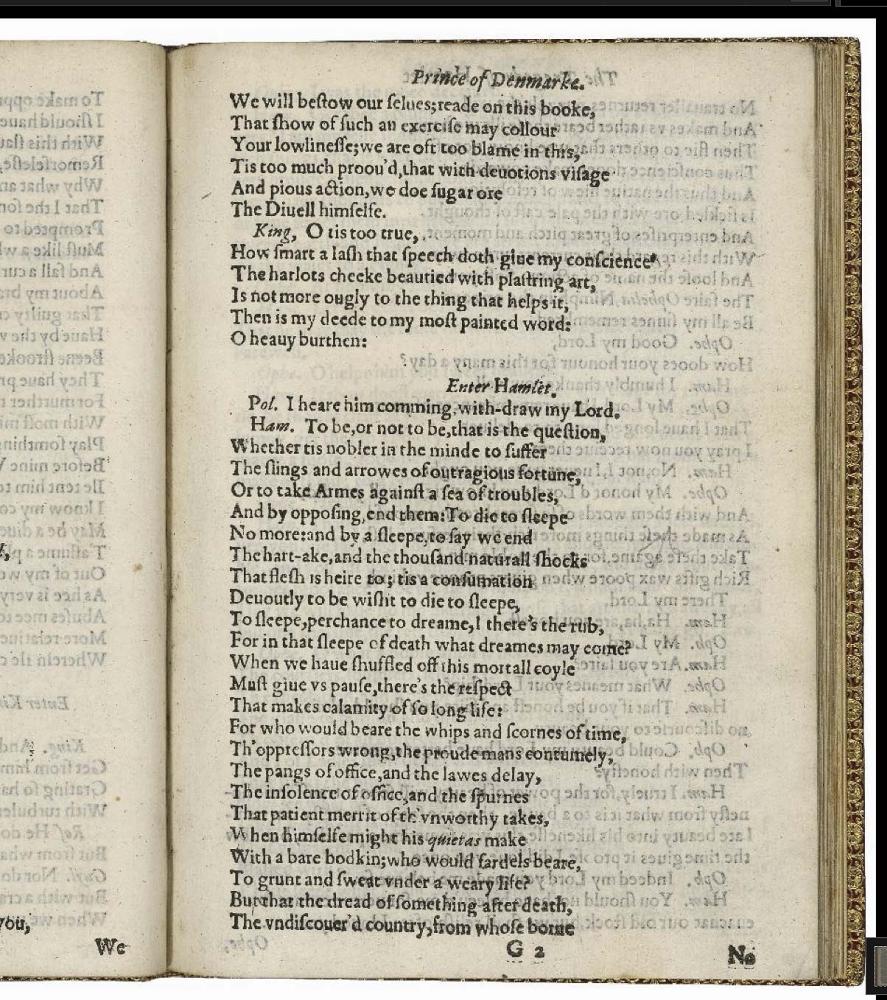 Prince of Denmarke.
We will beſtow our ſelues; reade on this booke,
That ſhow of ſuch an exerciſe may collour
Your lowlineſſe; we are oft too blame in this,
Tis too much proou'd, that with deuotions viſage
And pious action, we doe ſugar ore
The Diuell himſelfe.
King, O tis too true,
How ſmart a laſh that ſpeech doth giue my conſcience
The harlots cheeke beautied with plaſtring art,
Is not more ougly to the thing that helps it,
Then is my deede to my moſt painted word:
O heauy burthen:
Enter Hamlet.
Pol. I heare him comming, with-draw my Lord.
Ham. To be, or not to be, that is the queſtion,
Whether tis nobler in the minde to ſuffer
The ſlings and arrowes of outragious fortune,
Or to take Armes againſt a ſea of troubles,
And by oppoſing, end them: To die to ſleepe
No more: and by a ſleepe, to ſay we end
The hart-ake, and the thouſand naturall ſhocks
That fleſh is heire to; tis a conſumation
Deuoutly to be wiſht to die to ſleepe,
To ſleepe, perchance to dreame, I there's the rub,
For in that ſleepe of death what dreames may come?
When we haue ſhuffled off this mortall coyle
Muſt giue vs pauſe, there's the reſpect
That makes calamity of ſo long life:
For who would beare the whips and ſcornes of time,
Th'oppreſſors wrong, the proude mans contumely,
The pangs of office, and the lawes delay,
The inſolence of office, and the ſpurnes
That patient merrit of th'vnworthy takes,
When himſelfe might his quietas make
With a bare bodkin; who would fardels beare,
To grunt and ſweat vnder a weary life?
But that the dread of ſomething after death,
The vndiſcouer'd country, from whoſe borne
G 2 No
you,
We